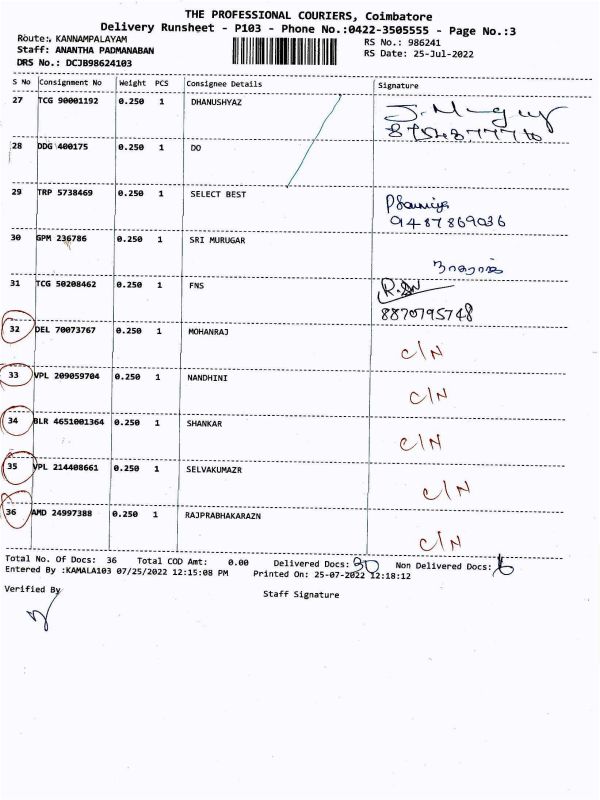 THE PROFESSIONAL COURIERS, Coimbatore
Delivery Runsheet - P103 - Phone No.:0422-3505555 - Page No.:3
Route:, KANNAMPALAYAM RS No.: 986241
Staff: ANANTHA PADMANABAN RS Date: 25-Jul-2022
DRS No.: DCJB98624103
S No Consignment No Weight PCS Consignee Details Signature
27 TCG 90001192 0.250 1 DHANUSHYAZ
28 DDG 400175 0.250 1 DO
29 TRP 5738469 0.250 1 SELECT BEST
9487869036
30 GPM 236786 0.250 1 SRI MURUGAR
31 TCG 50208462 0.250 1 FNS
8870795748
32 DEL 70073767 0.250 1 MOHANRAJ
C/N
33 VPL 209059704 0.250 1 NANDHINI
C/N
34 BLR 4651001364 0.250 1 SHANKAR
C/N
35 VPL 214408661 0.250 1 SELVAKUMAZR
C/N
36 AMD 24997388 0.250 1 RAJPRABHAKARAZN
C/N
Total No. Of Docs: 36 Total COD Amt: 0.00 Delivered Docs: 30 Non Delivered Docs: 6
Entered By :KAMALA103 07/25/2022 12:15:08 PM Printed On: 25-07-2022 12:18:12
Verified By Staff Signature